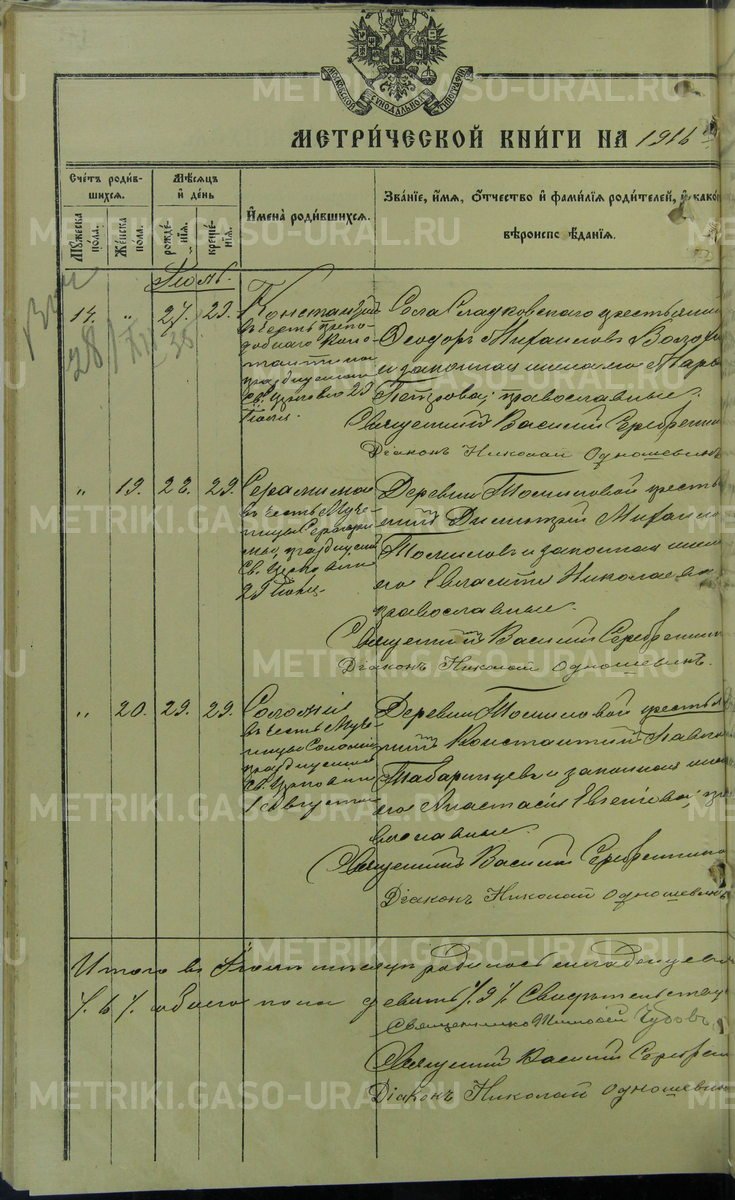 МОСКОВСКОЙ СѴНОДАЛЬНОЙ ТИПОГРАФІИ
МЕТРИЧЕСКОЙ КНИГИ НА 1916
Счетъ родив-
шихся.
Мѣсяцъ
и день
Мужеска
пола.
Женска
пола.
рожде-
нія.
креще-
нія.
Имена родившихся.
Званіе, имя, отчество и фамилія родителей, и како
вѣроисповѣданія.
14. " 27. 29. Константинъ
въ честь препо-
добнаго Конс-
тантина
празднуемаго
Св. Церковію 29
Села Сладковскаго крестьянинъ
Ѳеодоръ Михаиловъ
и законная жена его Марія
Петрова; православные.
Священникъ Василій Серебренни
Діаконъ Николай Одношевинъ
" 19. 28. 29. Серафима
въ честь Муче-
ницы Серафи-
мы, празднуемой
Св. Церковію
29 Іюля.
Деревни Томиловой кресть
янинъ Димитрій Михаило
Томиловъ и законная жена
его Евлампія Николаева
православные.
Священникъ Василій Серебренни
Діаконъ Николай Одношевинъ.
" 20. 29. 29. Соломія
въ честь Муче-
ницы Соломіи
празднуемой
Св. Церковію
1 Августа
Деревни Томиловой крестья
нинъ Константинъ Павло
Табаринцевъ и законная жена
его Анастасія Евгеніева; пра
вославные.
Священникъ Василій Серебренник
Діаконъ Николай Одношевинъ
Итого въ Іюлѣ мѣсяцѣ родилось младенцевъ
обоего пола девять /.9/. Свидѣтельству
Священникъ Чудовъ
Священникъ Василій Серебрен
Діаконъ Николай Одношевинъ
METRIKI.GASO-URAL.RU